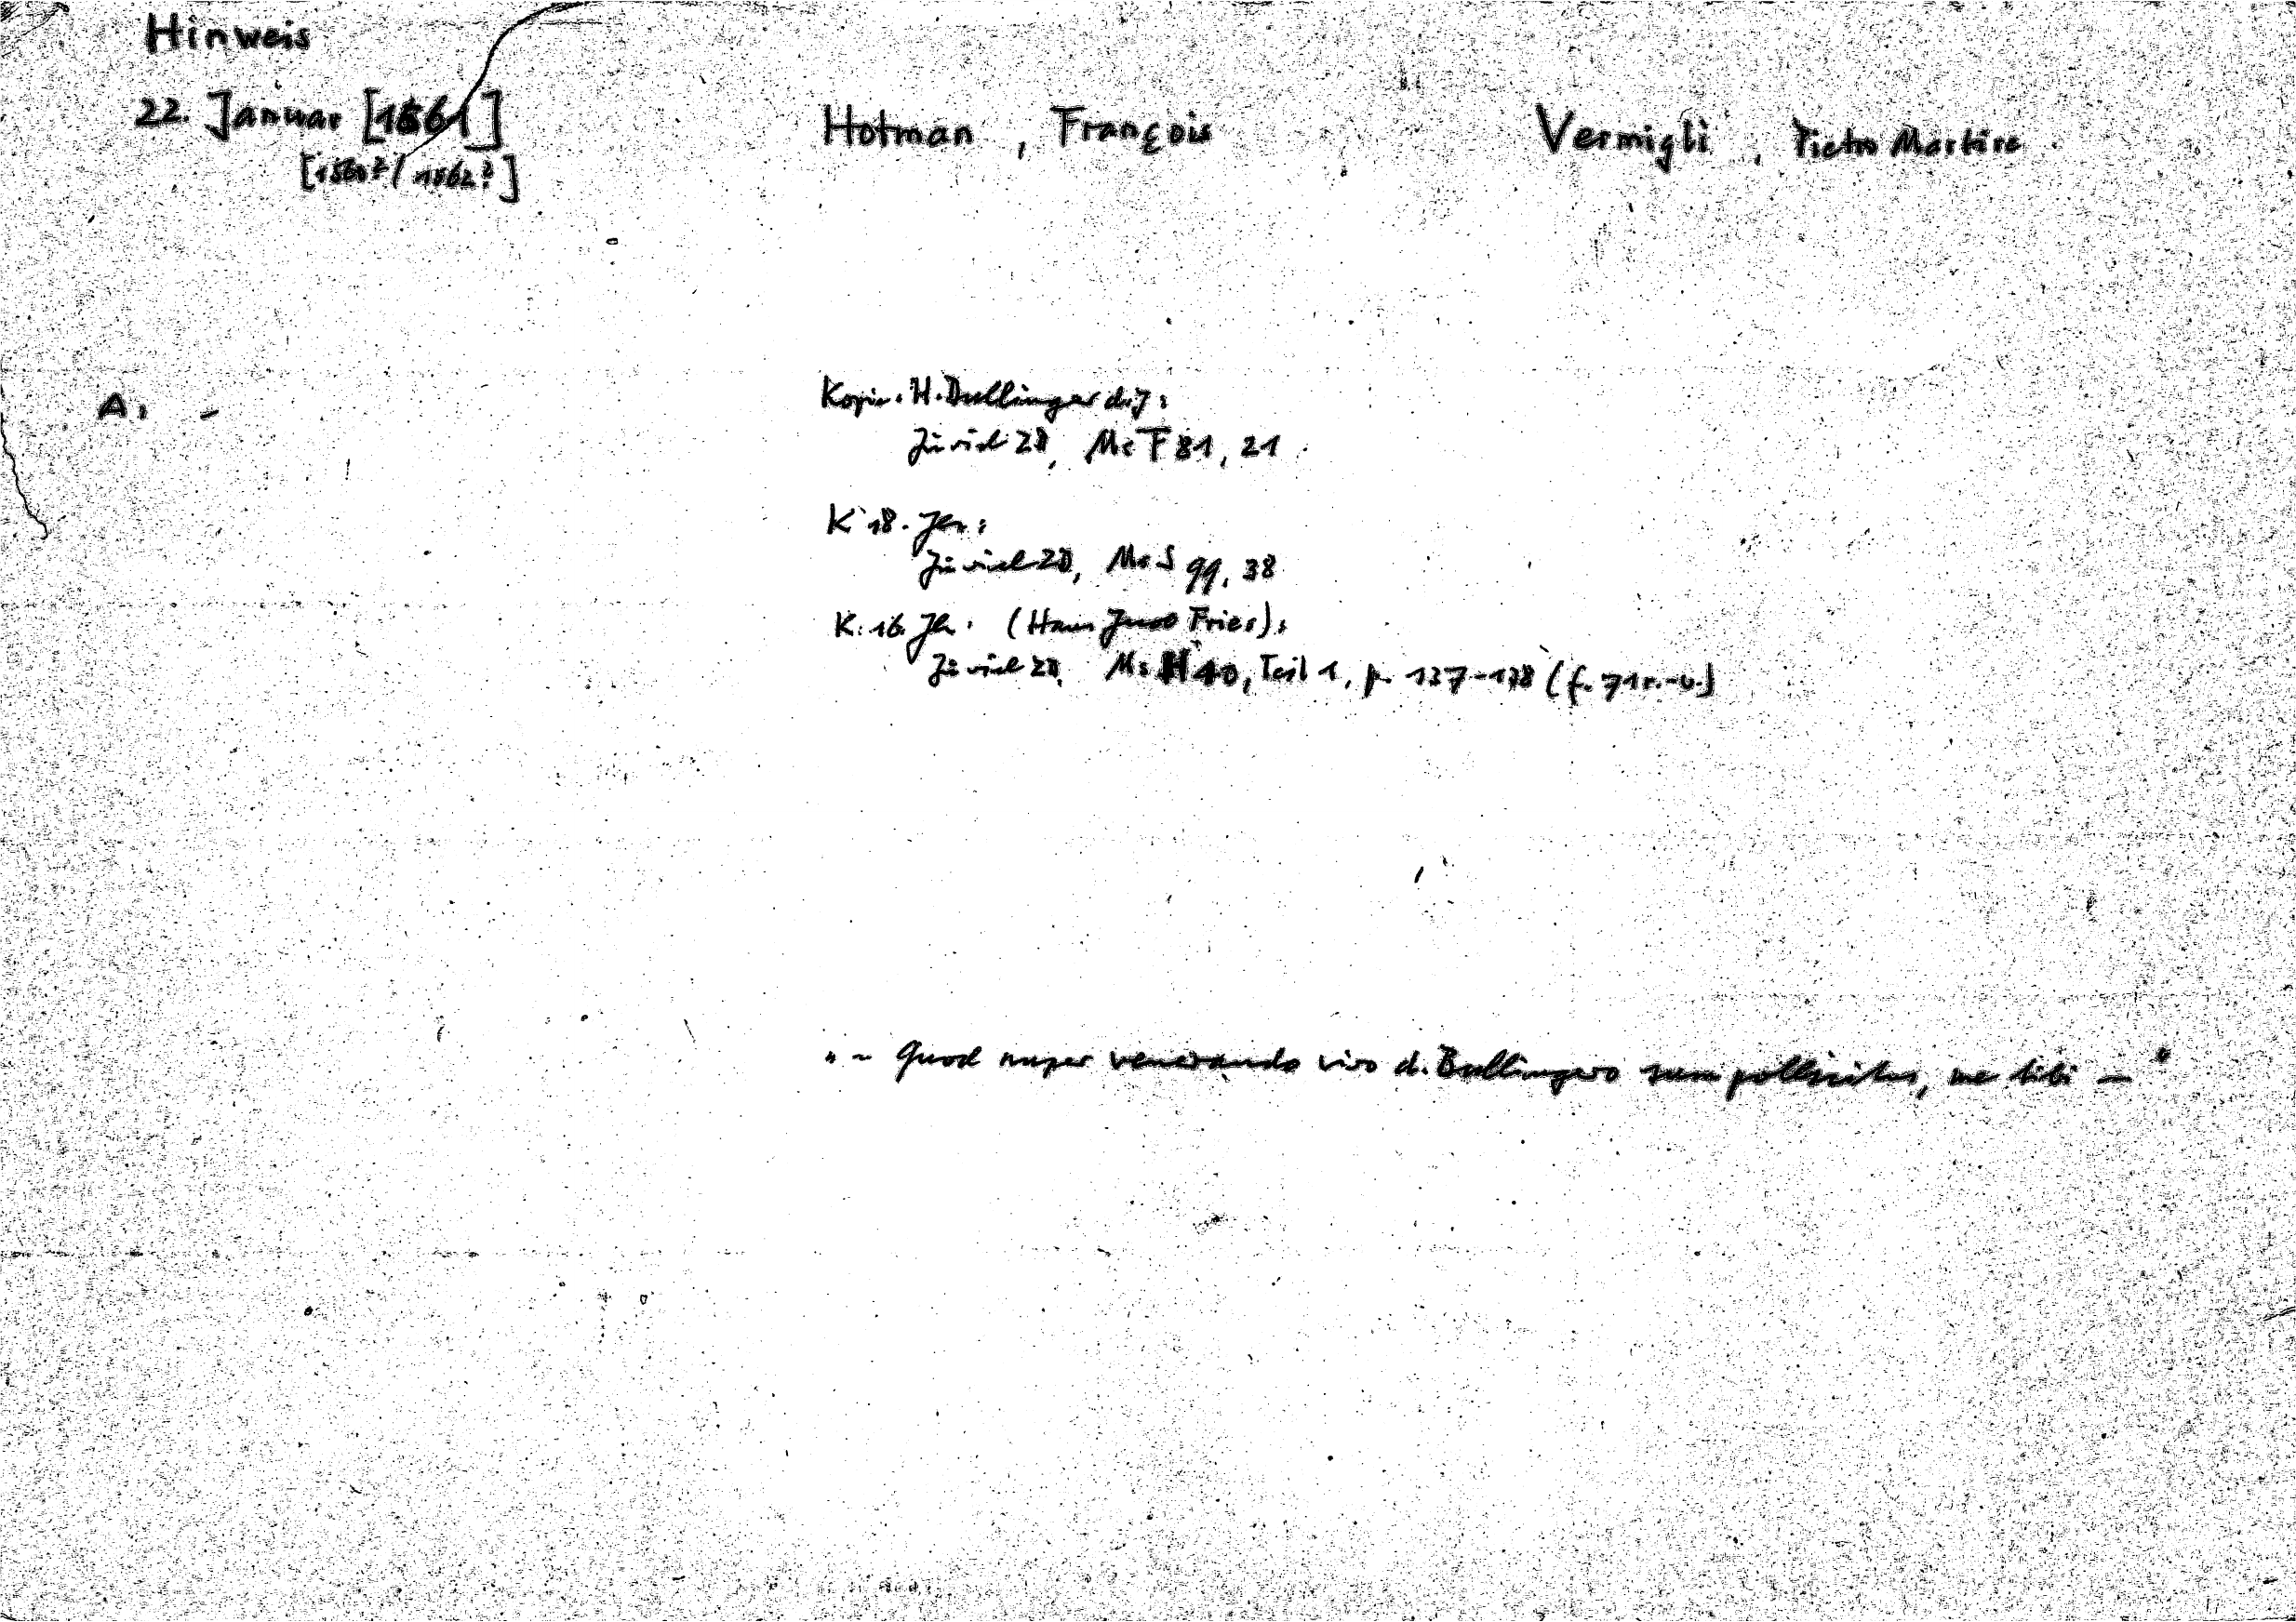 Hinweis
22. Januar [1561]
[1560?/1562?]
Hotman, François
Vermigli, Pietro Martire
A: -
Kopie. H. Bullinger d.J:
Zürich ZB, Ms F 81, 21
K 18. Jh.:
Zürich ZB, Ms S 99, 38
K. 16. Jh. (Hans Jacob Fries):
Zürich ZB, Ms H 40, Teil 1, p. 137-138 (f. 71r.-v.)
"- Quod nuper venerando viro d. Bullingero sum pollicitus, me tibi -"